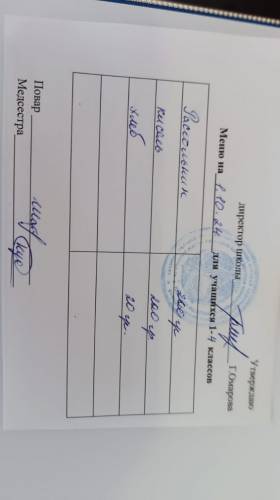 Утверждаю
директор школы Г.Омарова
Меню на 1.10.24 для учащихся 1-4 классов
Рассольник 200 гр
кисель 200 гр
хлеб 20 гр.
Повар
Медсестра